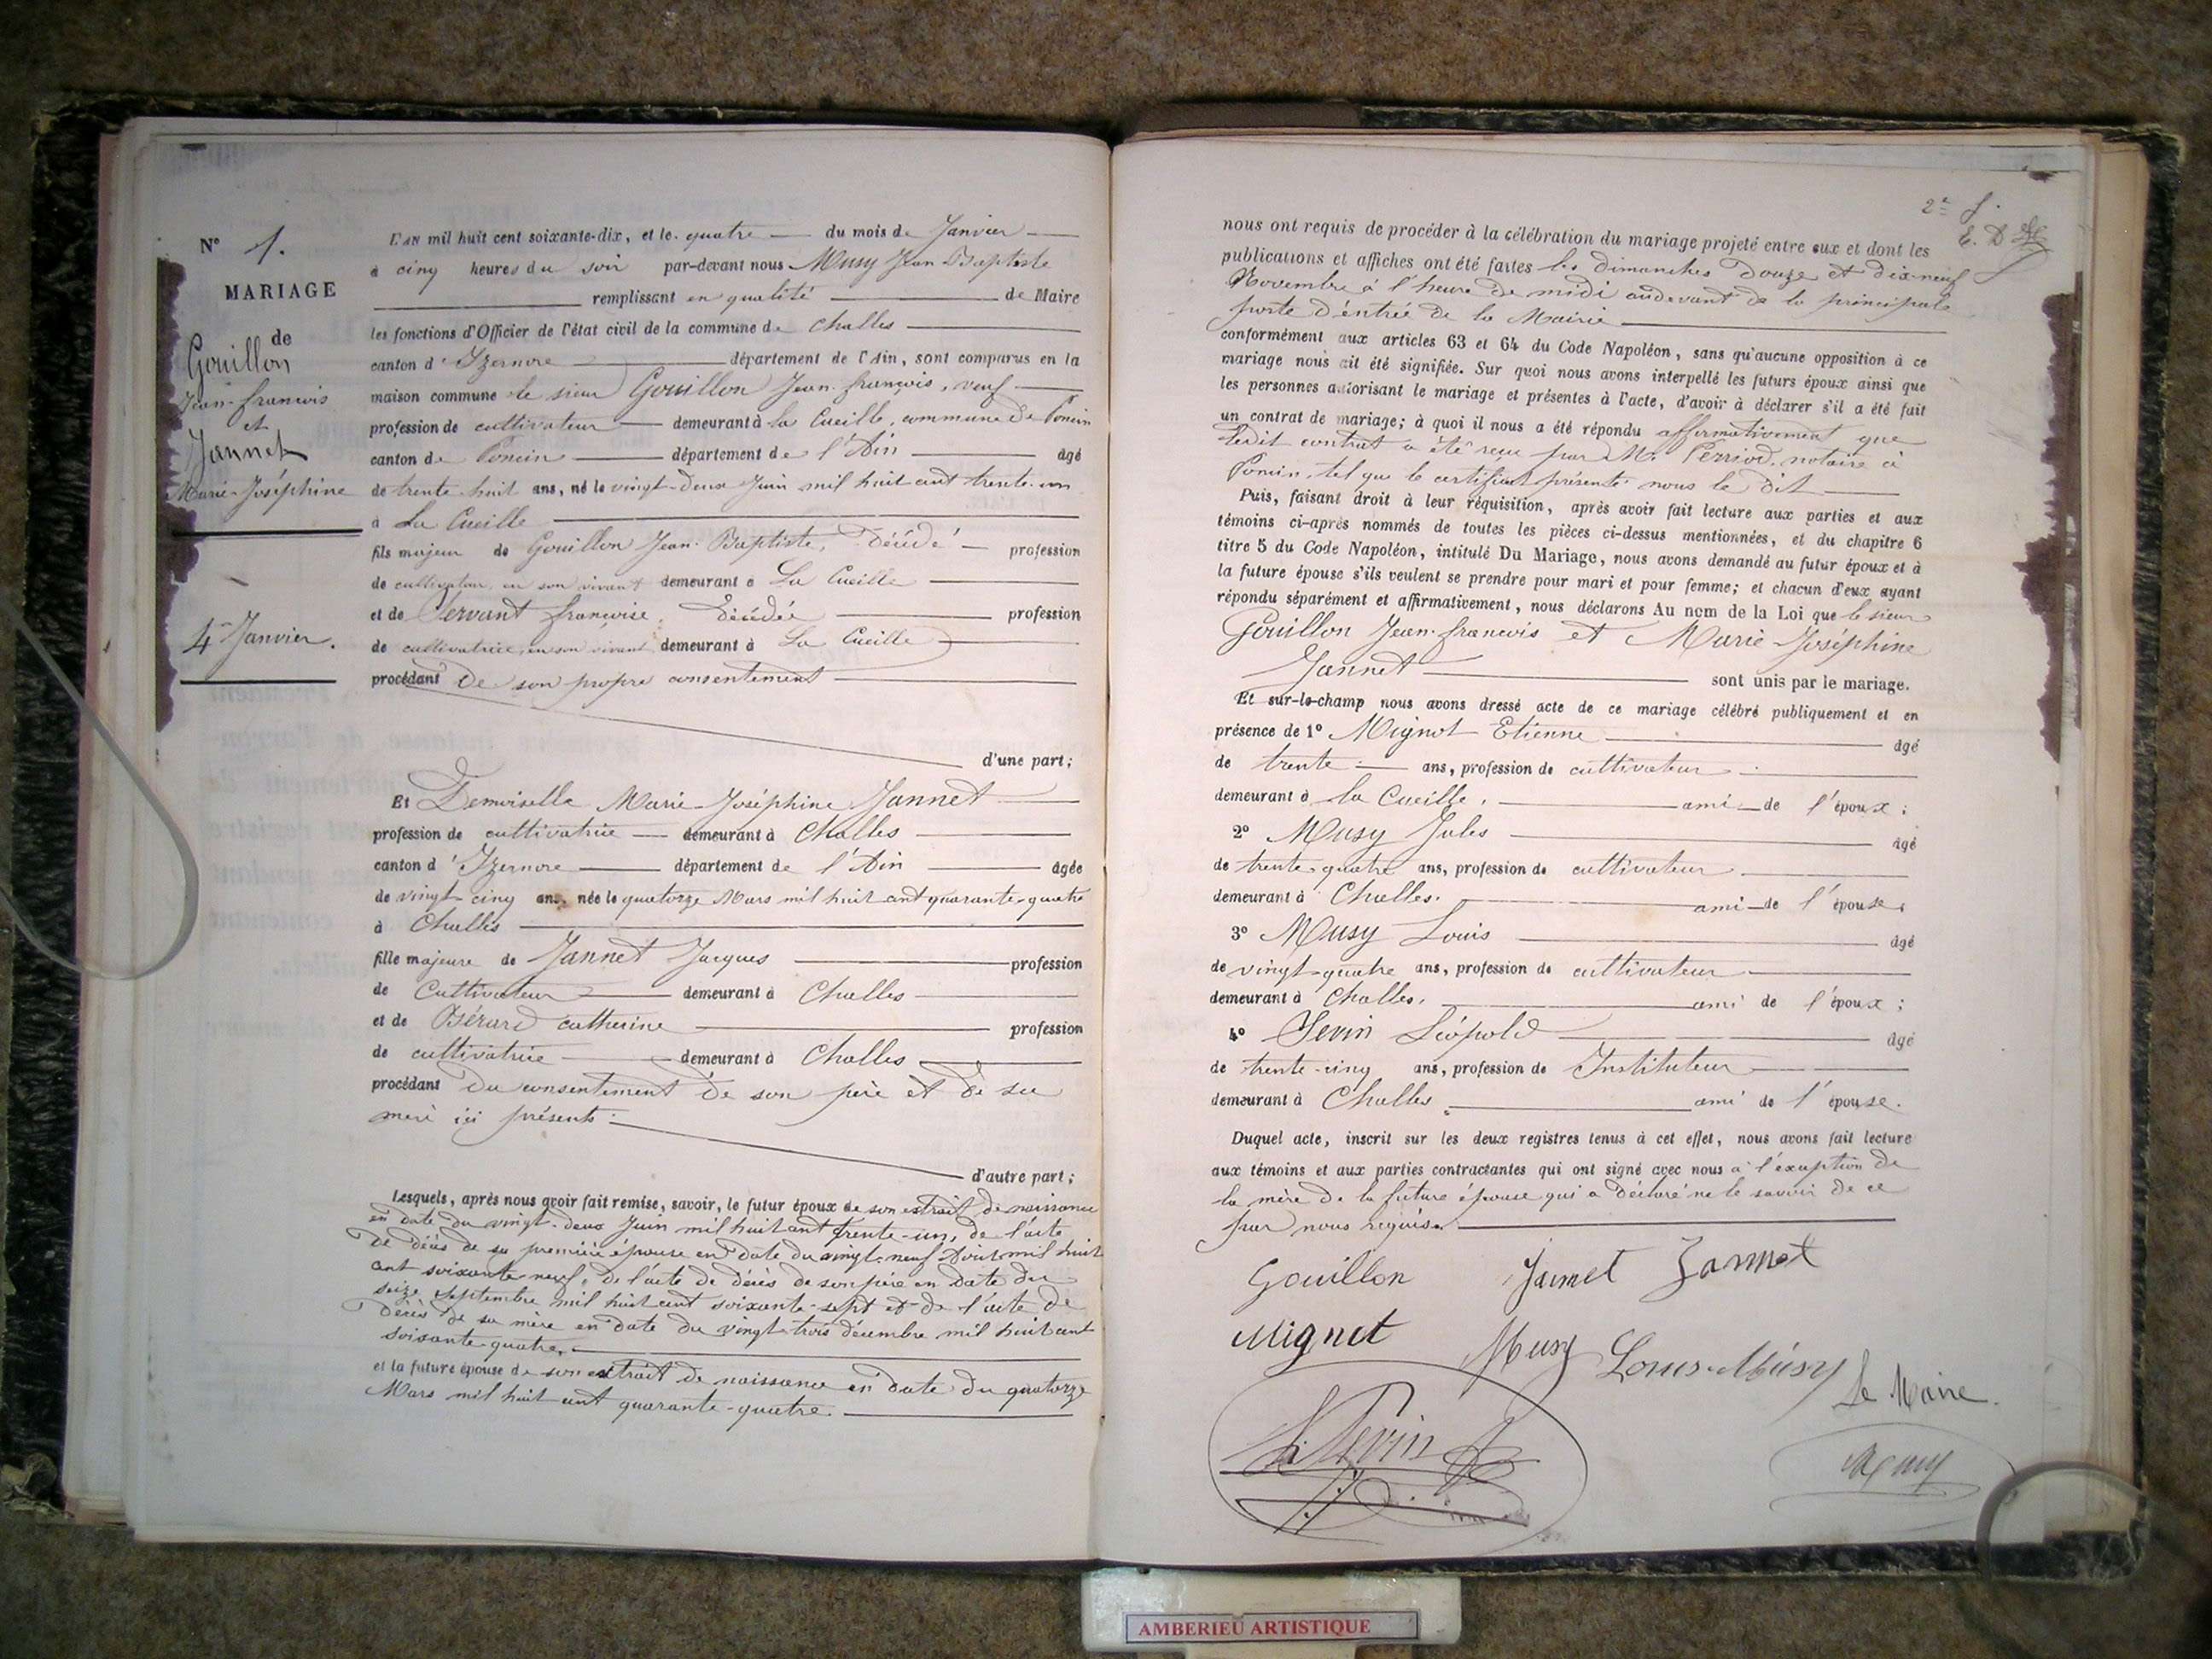 N° 1.
MARIAGE
de
Gouillon
Jean-francois
et
Jannet
Marie-Joséphine
4 Janvier.
L'AN mil huit cent soixante-dix, et le quatre du mois de Janvier
à cinq heures du soir par-devant nous Musy Jean Baptiste
remplissant en qualité de Maire
les fonctions d'Officier de l'état civil de la commune de Challes
canton d'Izernore département de l'Ain, sont comparus en la
maison commune le sieur Gouillon Jean-françois, veuf
profession de cultivateur demeurant à la Cueille, commune de Poncin
canton de Poncin département de l'Ain âgé
de trente-huit ans, né le vingt-deux Juin mil huit cent trente-un
à La Cueille
fils majeur de Gouillon Jean-Baptiste, Décédé profession
de cultivateur, en son vivant demeurant à La Cueille
et de Servant francoise, Décédée profession
de cultivatrice, en son vivant, demeurant à La Cueille
procédant De son propre consentement
d'une part;
Et Demoiselle Marie-Joséphine Jannet
profession de cultivatrice demeurant à Challes
canton d'Izernore département de l'Ain âgée
de vingt-cinq ans, née le quatorze Mars mil huit cent quarante-quatre
à Challes
fille majeure de Jannet Jacques profession
de Cultivateur demeurant à Challes
et de Bérard catherine profession
de cultivatrice demeurant à Challes
procédant Du consentement de son père et de sa
mère ici présents
d'autre part;
Lesquels, après nous avoir fait remise, savoir, le futur époux de son extrait de naissance
en date du vingt-deux Juin mil huit cent trente-un, de l'acte
De décès de sa première épouse en Date du vingt-neuf Aout mil huit
cent soixante-neuf, De l'acte de décès de son père en date du
seize septembre mil huit cent soixante-sept et de l'acte de
Décès de sa mère en date du vingt-trois décembre mil huit cent
soixante-quatre,
et la future épouse de son extrait de naissance en date du quatorze
Mars mil huit cent quarante-quatre.
2e f.
nous ont requis de procéder à la célébration du mariage projeté entre eux et dont les
publications et affiches ont été faites les dimanches Douze et dix-neuf
Novembre à l'heure de midi audevant de la principale
porte d'entrée de la Mairie
conformément aux articles 63 et 64 du Code Napoléon, sans qu'aucune opposition à ce
mariage nous ait été signifiée. Sur quoi nous avons interpellé les futurs époux ainsi que
les personnes autorisant le mariage et présentes à l'acte, d'avoir à déclarer s'il a été fait
un contrat de mariage; à quoi il nous a été répondu affirmativement que
ledit contrat a été reçu par Me Perriod, notaire à
Poncin, tel que le certificat présenté nous le dit
Puis, faisant droit à leur réquisition, après avoir fait lecture aux parties et aux
témoins ci-après nommés de toutes les pièces ci-dessus mentionnées, et du chapitre 6
titre 5 du Code Napoléon, intitulé Du Mariage, nous avons demandé au futur époux et à
la future épouse s'ils veulent se prendre pour mari et pour femme; et chacun d'eux ayant
répondu séparément et affirmativement, nous déclarons Au nom de la Loi que le sieur
Gouillon Jean-francois et Marie-Joséphine
Jannet sont unis par le mariage.
Et sur-le-champ nous avons dressé acte de ce mariage célébré publiquement et en
présence de 1° Mignot Etienne âgé
de trente ans, profession de cultivateur
demeurant à la Cueille, ami de l'époux;
2° Musy Jules âgé
de trente-quatre ans, profession de cultivateur
demeurant à Challes. ami de l'épouse,
3° Musy Louis âgé
de vingt-quatre ans, profession de cultivateur
demeurant à Challes, ami de l'époux;
4° Sevin Léopold âgé
de trente-cinq ans, profession de Instituteur
demeurant à Challes, ami de l'épouse.
Duquel acte, inscrit sur les deux registres tenus à cet effet, nous avons fait lecture
aux témoins et aux parties contractantes qui ont signé avec nous à l'exception de
la mère de la future épouse qui a Déclaré ne le savoir de ce
par nous requise.
Gouillon Jannet Jannet
Mignot Musy Louis Musy
Le Maire.
L. Sevin
Musy
AMBERIEU ARTISTIQUE